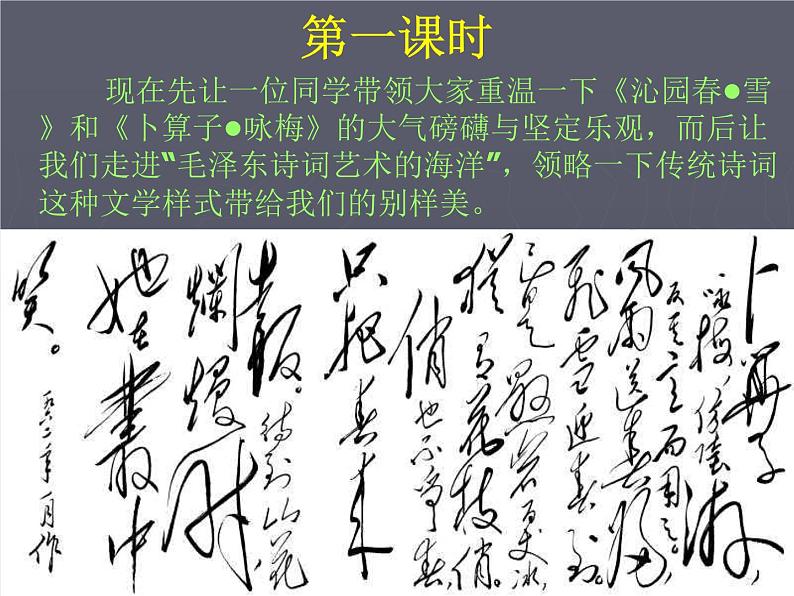 第一课时
现在先让一位同学带领大家重温一下《沁园春●雪
》和《卜算子●咏梅》的大气磅礴与坚定乐观，而后让
我们走进“毛泽东诗词艺术的海洋”，领略一下传统诗词
这种文学样式带给我们的别样美。
卜算子，
咏梅，仿陆游，
反其意而用之。
风雨送春归，
飞雪迎春到。
已是悬岩百丈冰，
犹有花枝俏。
俏也不争春，
只把春来
报。待到山花
爛熳时
她在叢中
笑。
一九六二年一月作